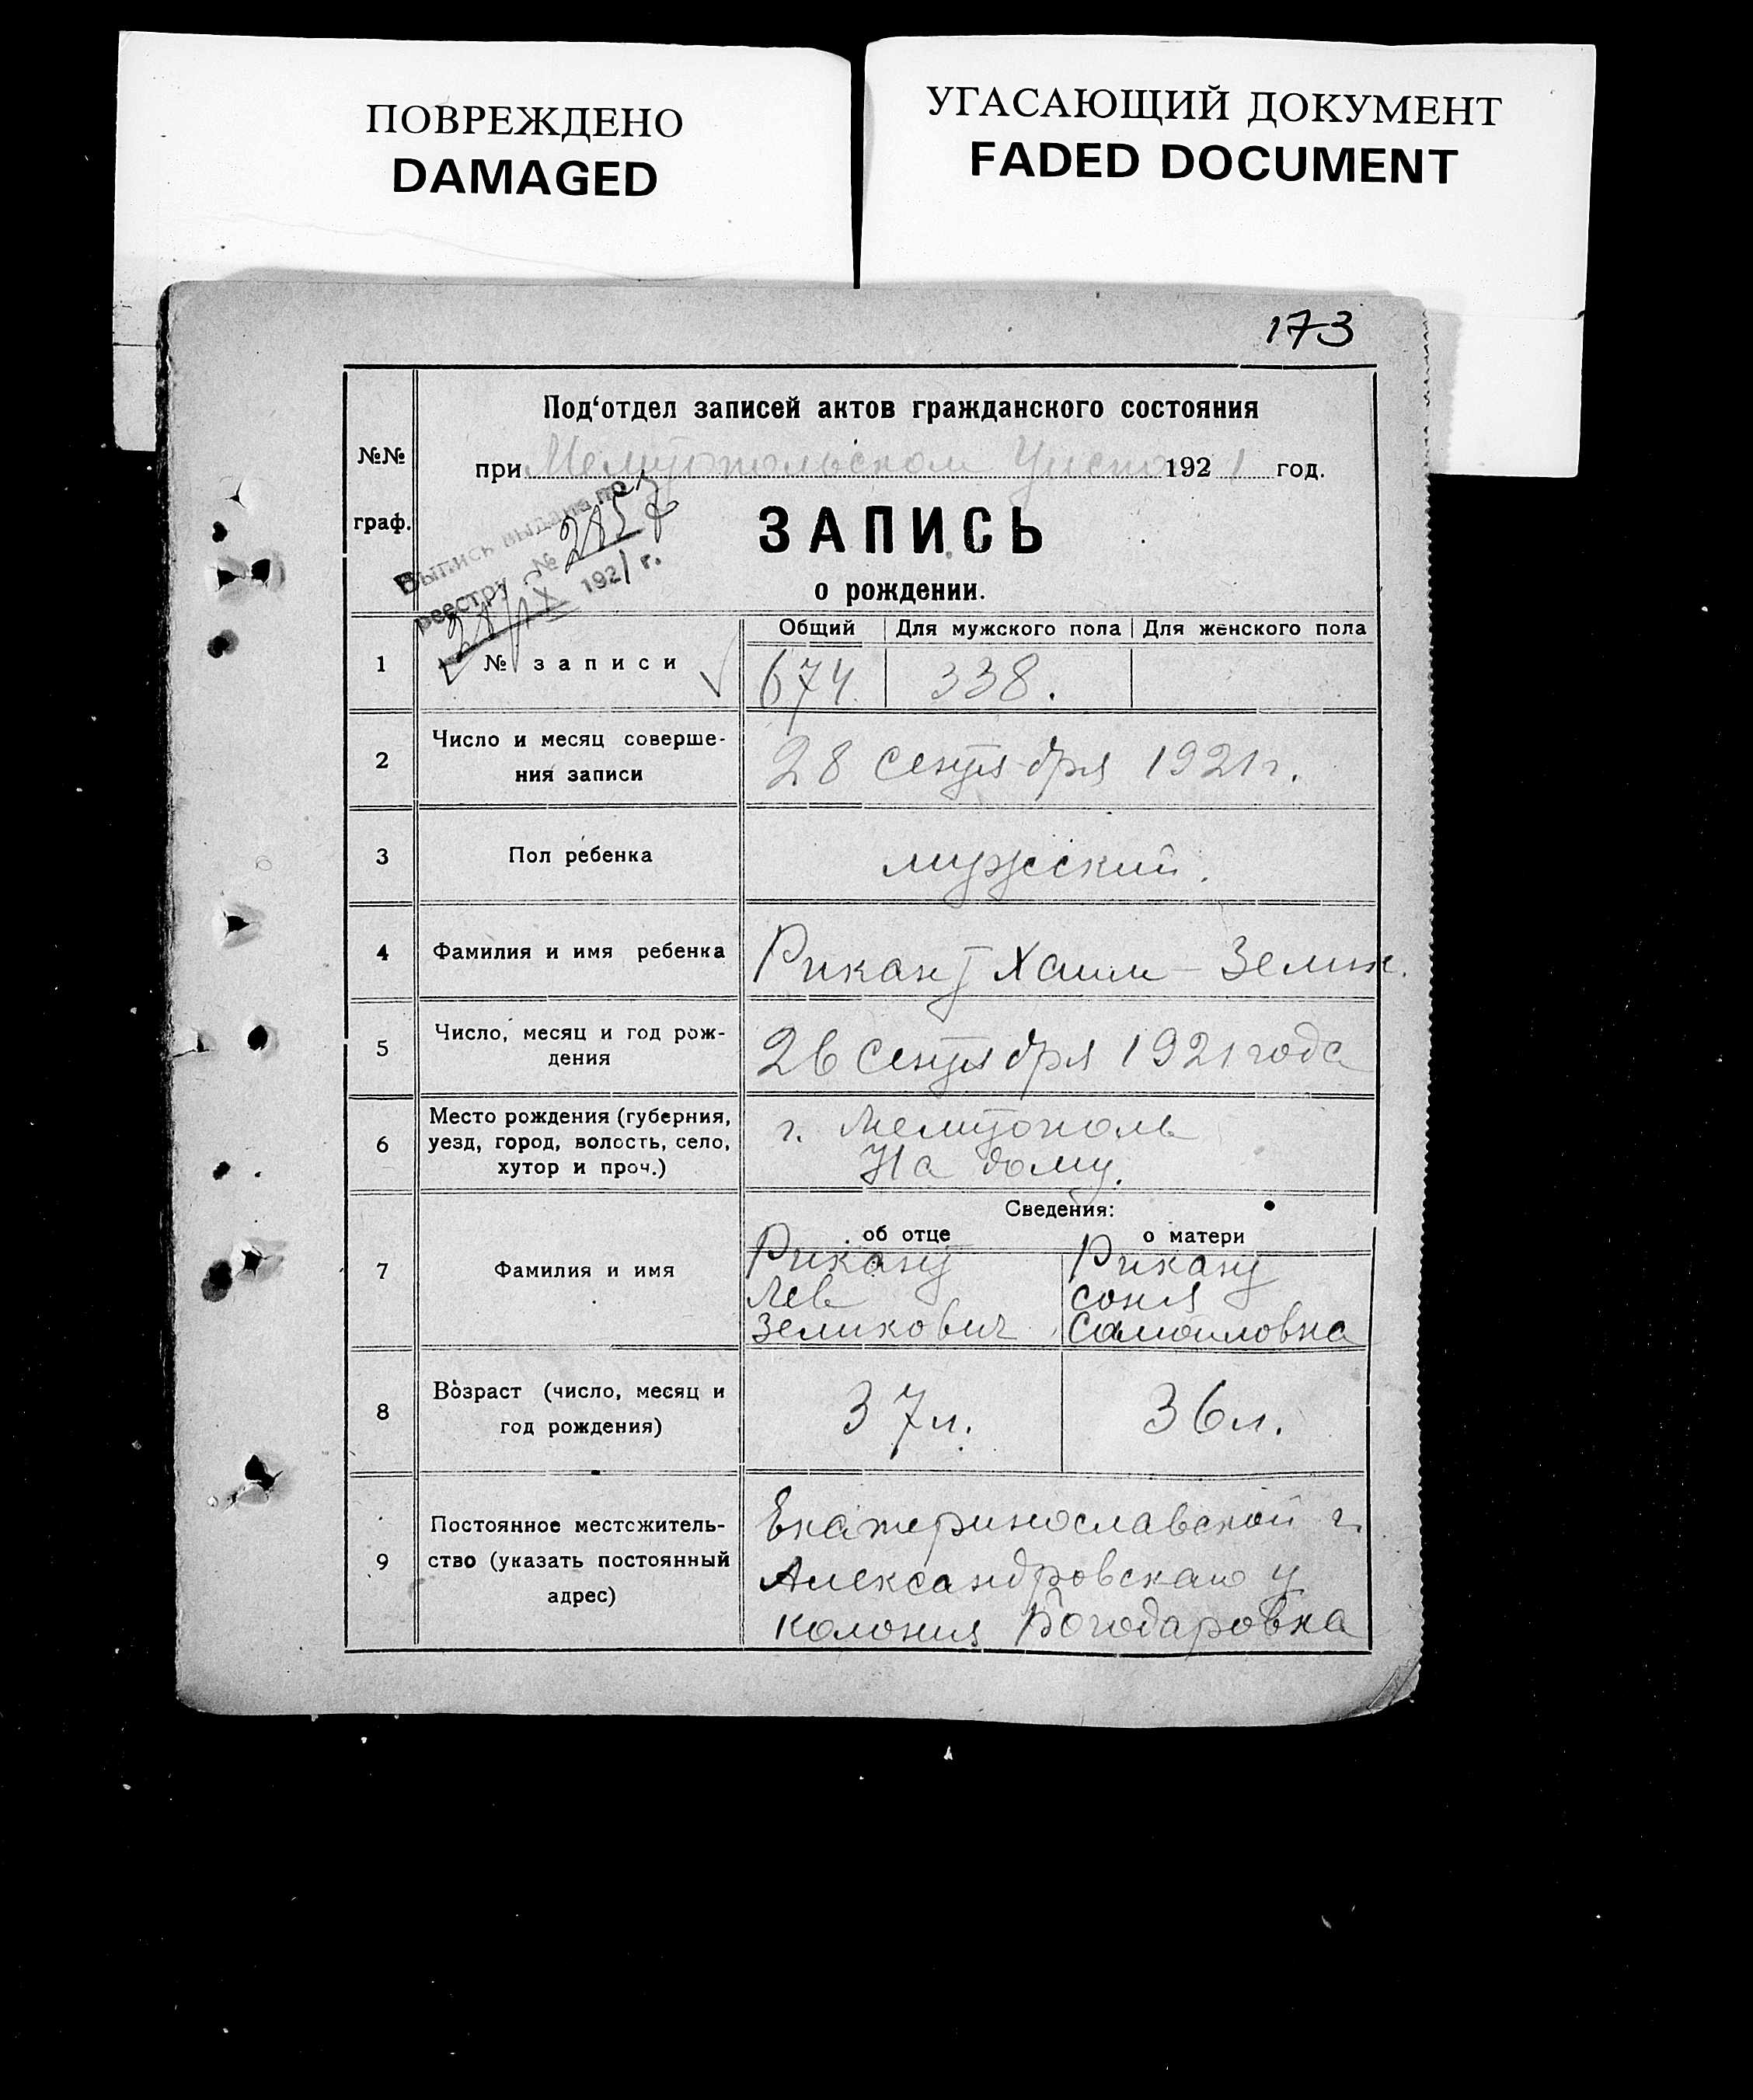 ПОВРЕЖДЕНО
DAMAGED
УГАСАЮЩИЙ ДОКУМЕНТ
FADED DOCUMENT
173
№№ граф.
Под‘отдел записей актов гражданского состояния
при Мелитопольском 1921 год.
Выпись выдана по
реестру № 2157
28/IX 1921 г.
ЗАПИСЬ
о рождении.
Общий Для мужского пола Для женского пола
1 № записи 674 338.
2 Число и месяц соверше-
ния записи
28 сентября 1921 г.
3 Пол ребенка мужской.
4 Фамилия и имя ребенка Рикант Хаим-Зелик.
5 Число, месяц и год рож-
дения
26 сентября 1921 года
6 Место рождения (губерния,
уезд, город, волость, село,
хутор и проч.)
г. Мелитополь
На дому.
Сведения:
об отце о матери
7 Фамилия и имя
Рикант
Лев
Зеликович
Рикант
Соня
Самойловна
8 Возраст (число, месяц и
год рождения)
37 л. 36 л.
9 Постоянное местожитель-
ство (указать постоянный
адрес)
Екатеринославской г.
Александровскаго у.
колония Богодаровка